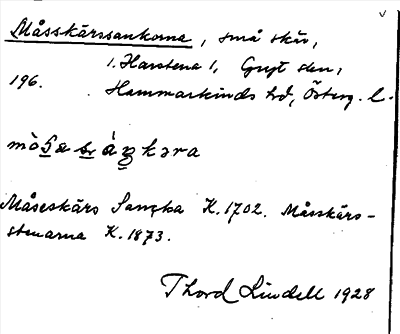 Måsskärssankorna, små skär,
1. Harstena 1, Gryt sn,
196. Hammarkinds hd, Österg. l.
Måseskärs Sanka K.1702. Måsskärs-
stenarna K.1873.
Thord Lindell 1928